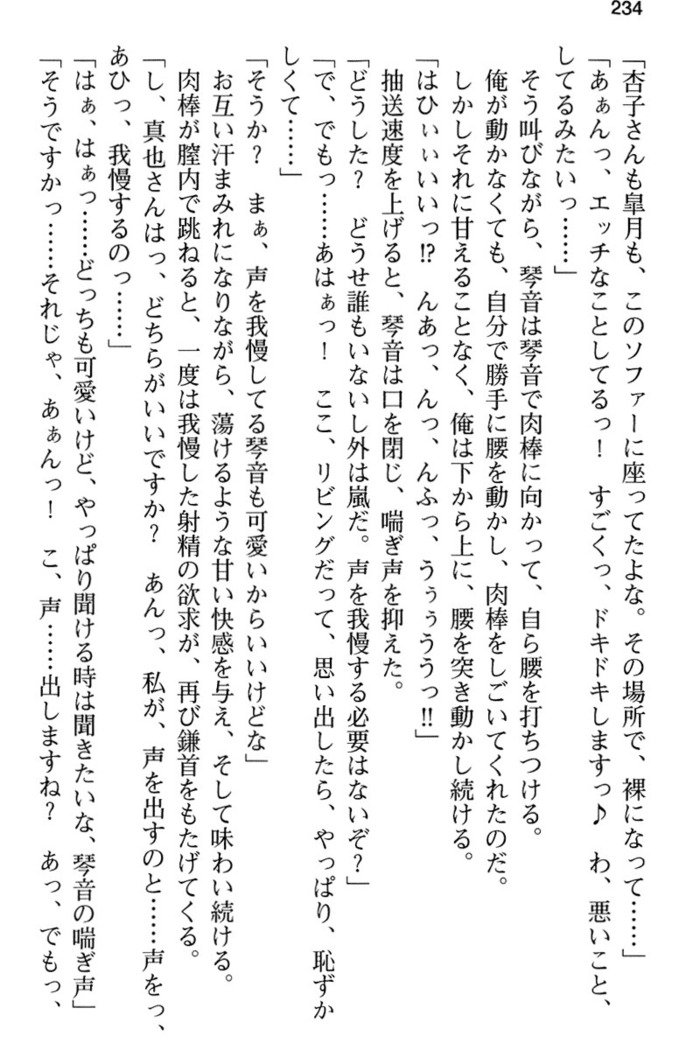 234
「杏子さんも皐月も、このソファーに座ってたよな。その場所で、裸になって……」
「あぁんっ、エッチなことしてるっ！　すごくっ、ドキドキしますっ♪　わ、悪いこと、
してるみたいっ……」
そう叫びながら、琴音は琴音で肉棒に向かって、自ら腰を打ちつける。
俺が動かなくても、自分で勝手に腰を動かし、肉棒をしごいてくれたのだ。
しかしそれに甘えることなく、俺は下から上に、腰を突き動かし続ける。
「はひぃぃいいっ⁉　んあっ、んっ、んふっ、うぅぅううっ‼」
抽送速度を上げると、琴音は口を閉じ、喘ぎ声を抑えた。
「どうした？　どうせ誰もいないし外は嵐だ。声を我慢する必要はないぞ？」
「で、でもっ……あはぁっ！　ここ、リビングだって、思い出したら、やっぱり、恥ずか
しくて……」
「そうか？　まぁ、声を我慢してる琴音も可愛いからいいけどな」
お互い汗まみれになりながら、蕩けるような甘い快感を与え、そして味わい続ける。
肉棒が膣内で跳ねると、一度は我慢した射精の欲求が、再び鎌首をもたげてくる。
「し、真也さんはっ、どちらがいいですか？　あんっ、私が、声を出すのと……声をっ、
あひっ、我慢するのっ……」
「はぁ、はぁっ……どっちも可愛いけど、やっぱり聞ける時は聞きたいな、琴音の喘ぎ声」
「そうですかっ……それじゃ、あぁんっ！　こ、声……出しますね？　あっ、でもっ、